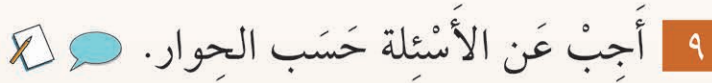 ٩ أَجِبْ عَن الأَسْئِلة حَسَب الحِوار.